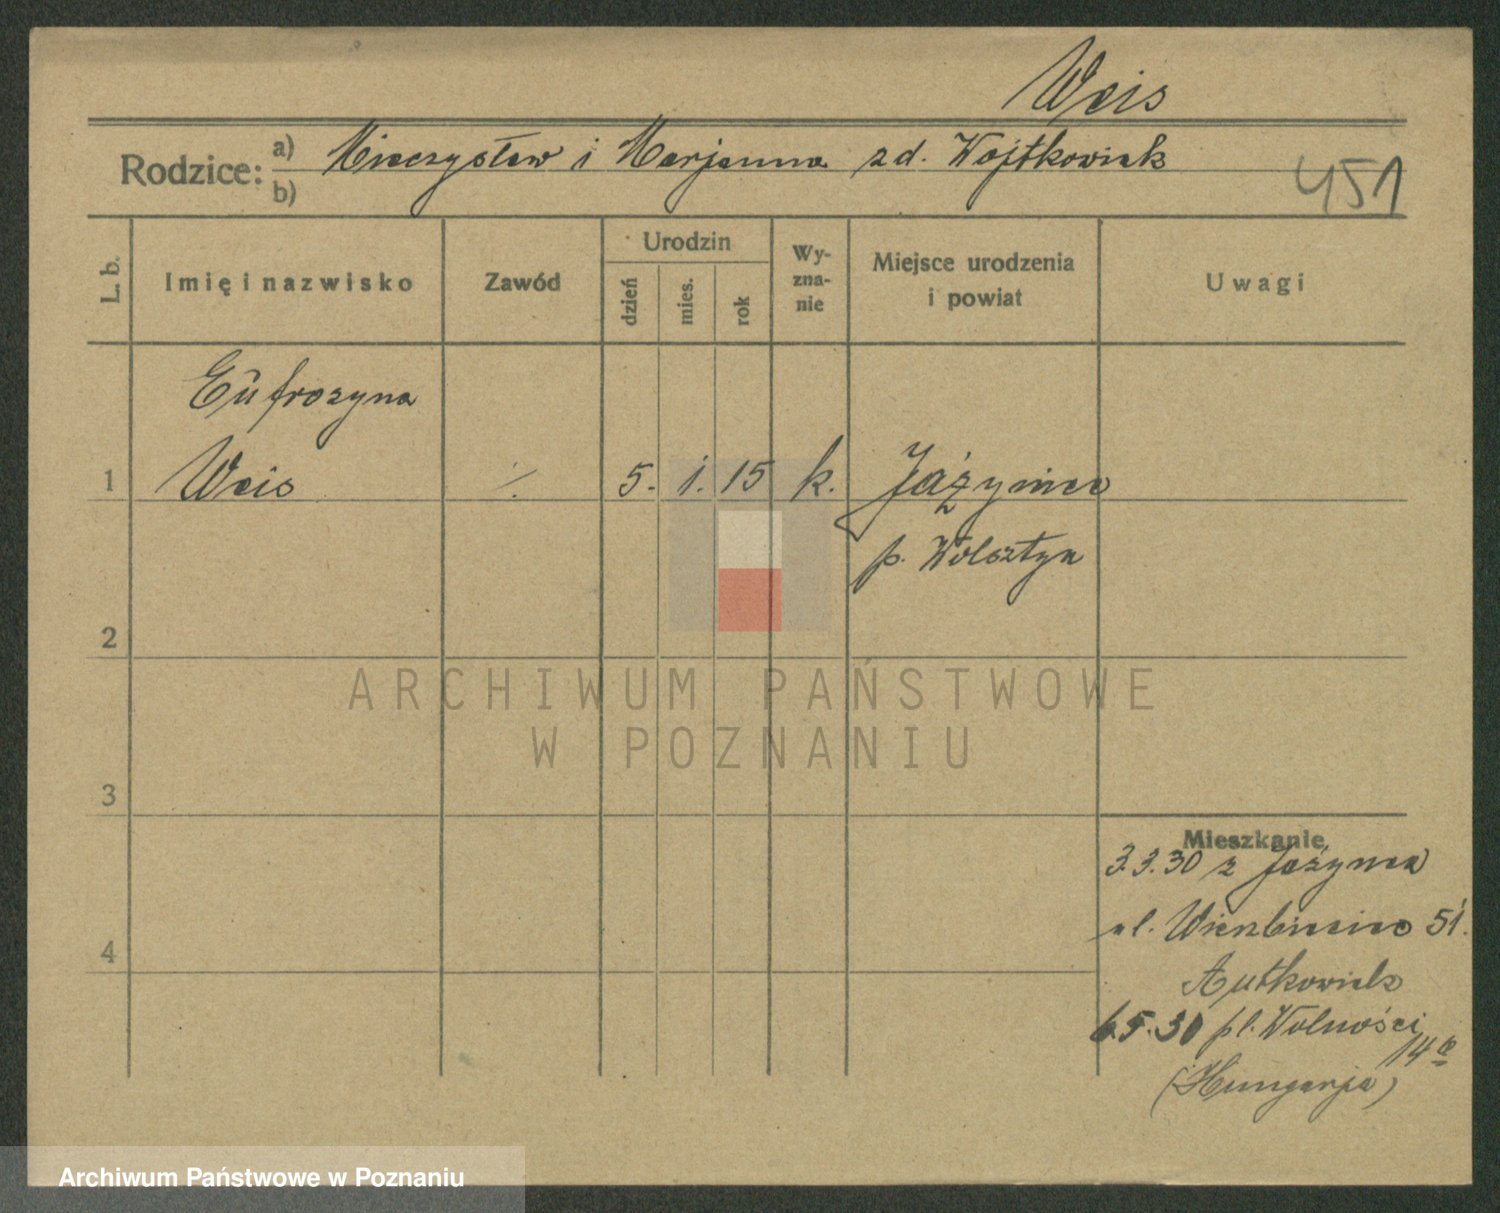 Weis
Rodzice:
a) Mieczysław i Marjanna zd. Wojtkowiak
b)
451
L. b.
Imię i nazwisko
Zawód
Urodzin
dzień
mies.
rok
Wy-
zna-
nie
Miejsce urodzenia
i powiat
Uwagi
Eufrozyna
1 Weis ./. 5. 1. 15 k. Jażyniec
p. Wolsztyn
2
ARCHIWUM PAŃSTWOWE
W POZNANIU
3
Mieszkanie
3.3.30 z Jażyńca
4
ul. Wierzbięcice 51.
6.5.30 pl. Wolności
14a
(Hungarja)
Archiwum Państwowe w Poznaniu